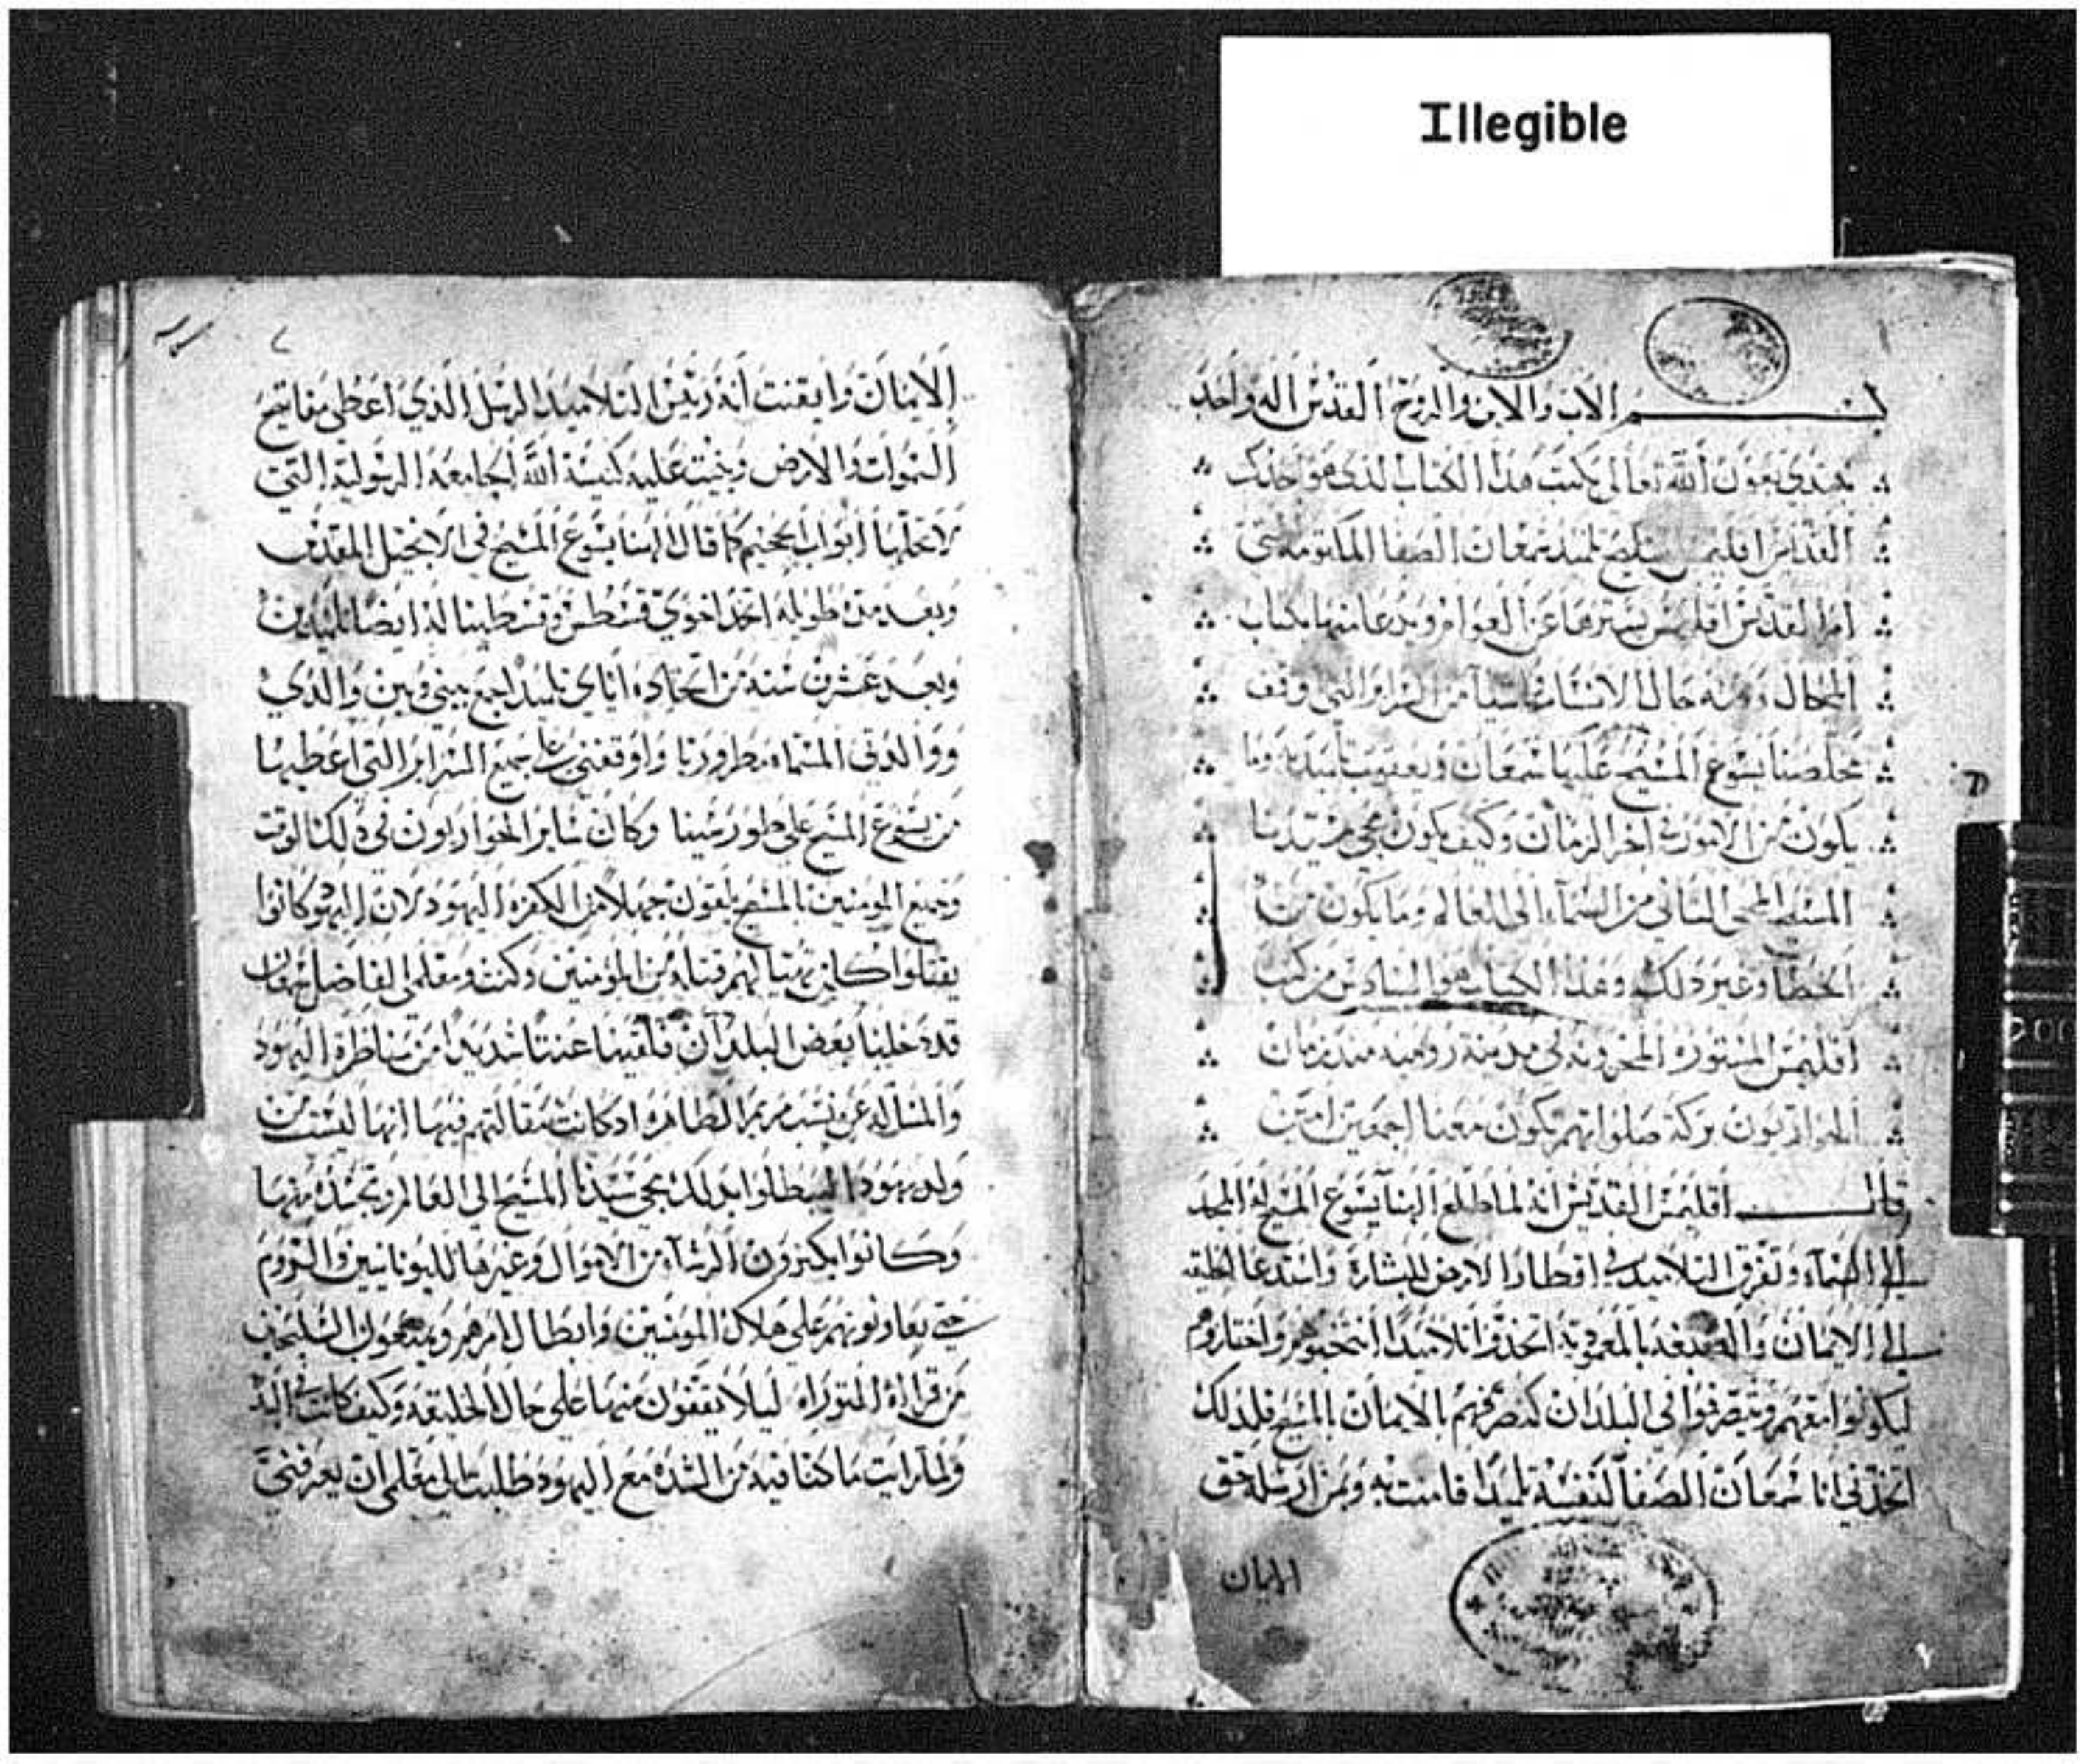 Illegible
بسم الاب والابن والروح القدس اله واحد
نبتدي بعون الله تعالى بكتب هذا الكتاب الذي هو احد كتب
القديس اقليمس تلميذ شمعان الصفا المكتومه التي
امر القديس اقليمس بسترها عن العوام ويدعا منها بكتاب
المجال ومنه حال الانسان من السراير التي وقف
مخلصنا يسوع المسيح عليها شمعان ويعقوب تلميديه وما
يكون من الامور في اخر الزمان وكيف يكون مجي سيدنا
المسيح المجي الثاني من السماء الى العالم وما يكون من
الخطا وغير ذلك وهذا الكتاب هو السادس من كتب
اقليمس المستوره المخزونه في مدينة روميه منذ زمان
الحواريون بركة صلواتهم تكون معنا اجمعين امين
قال اقليمس القديس انه لما طلع الهنا يسوع المسيح له المجد
الى السماء وتفرق التلاميد في اقطار الارض للبشارة واستدعا الخليقه
الى الايمان والصبغه بالمعموديه اتخذوا تلاميدا انتخبوهم واختاروهم
ليكونوا معهم ويتصرفوا في البلدان كتصرفهم بالايمان بالمسيح فلذلك
اتخدني انا شمعان الصفا لنفسه تلميدا فامنت به وبمن ارسله حق
الايمان
الايمان وايقنت انه رييس التلاميد الرسل الذي اعطي مفاتيح
السموات والارض وبنيت عليه كنيسة الله الجامعة الرسولية التي
لا تحلها ابواب الجحيم كما قال الهنا يسوع المسيح في الانجيل المقدس
وبعد مدة طويله اتخد اخوي قسطس وقسطينا له ايضا تلميدين
وبعد عشرين سنه من اتخاده اياي تلميدا جمع بيني وبين والدي
ووالدتي المسماه مطرورنا واوقفني على جميع السراير التي اعطيها
من يسوع المسيح على طور سينا وكان ساير الحواريون في ذلك الوقت
وجميع المومنين بالمسيح يلقون جهلا من الكفره اليهود لان اليهود كانوا
يقتلوا كل من تهيا لهم قتله من المؤمنين وكنت ومعلمي الفاضل شمعان
قد دخلنا بعض البلدان فلقينا عنتا شديدا من مناظرة اليهود
والمسله عن نسب مريم الطاهره اد كانت مقالتهم فيها انها ليست من
ولد يهودا ليبطلوا بدلك مجي سيدنا المسيح الى العالم وتجسده منها
وكانوا يكترون الرشاء من الاموال وغيرها لليونانيين والروم
حتى يعاونونهم على هلاك المومنين وابطال امرهم ويمنعون السليحين
من قراءة التوراه ليلا يقفون منها على حال الخليقه وكيف كانت في البد
ولما رايت ما كنا فيه من الشدة مع اليهود طلبت الى معلمي ان يعرفني